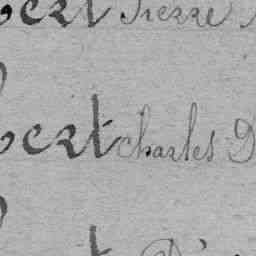 bert Pierre
bert Charles D